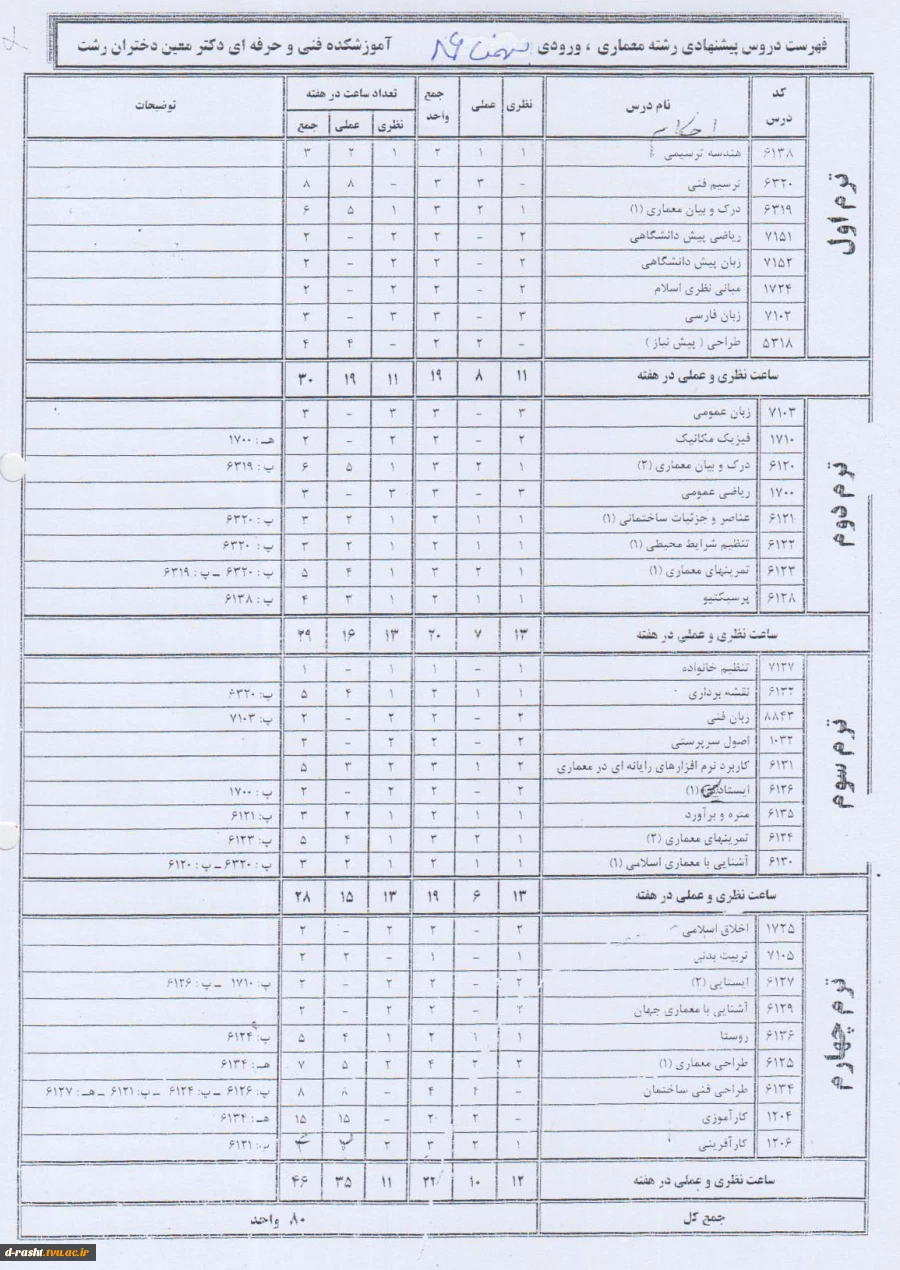 فهرست دروس پیشنهادی رشته معماری ، ورودی بهمن ۸۶ آموزشکده فنی و حرفه ای دکتر معین دختران رشت
کد درس نام درس نظری عملی جمع واحد تعداد ساعت در هفته توضیحات
نظری عملی جمع
ترم اول
۶۱۳۸ هندسه ترسیمی ۱ ۱ ۲ ۱ ۲ ۳
۶۳۲۰ ترسیم فنی - ۳ ۳ - ۸ ۸
۶۳۱۹ درک و بیان معماری (۱) ۱ ۲ ۳ ۱ ۵ ۶
۷۱۵۱ ریاضی پیش دانشگاهی ۲ - ۲ ۲ - ۲
۷۱۵۲ زبان پیش دانشگاهی ۲ - ۲ ۲ - ۲
۱۷۲۴ مبانی نظری اسلام ۲ - ۲ ۲ - ۲
۷۱۰۲ زبان فارسی ۳ - ۳ ۳ - ۳
۵۳۱۸ طراحی ( پیش نیاز ) - ۲ ۲ - ۴ ۴
ساعت نظری و عملی در هفته ۱۱ ۸ ۱۹ ۱۱ ۱۹ ۳۰
ترم دوم
۷۱۰۳ زبان عمومی ۳ - ۳ ۳ - ۳
۱۷۱۰ فیزیک مکانیک ۲ - ۲ ۲ - ۲ هـ : ۱۷۰۰
۶۱۲۰ درک و بیان معماری (۲) ۱ ۲ ۳ ۱ ۵ ۶ پ : ۶۳۱۹
۱۷۰۰ ریاضی عمومی ۳ - ۳ ۳ - ۳
۶۱۲۱ عناصر و جزئیات ساختمانی (۱) ۱ ۱ ۲ ۱ ۲ ۳ پ : ۶۳۲۰
۶۱۲۲ تنظیم شرایط محیطی (۱) ۱ ۱ ۲ ۱ ۲ ۳ پ : ۶۳۲۰
۶۱۲۳ تمرینهای معماری (۱) ۱ ۲ ۳ ۱ ۴ ۵ پ : ۶۳۲۰ ـ پ : ۶۳۱۹
۶۱۲۸ پرسپکتیو ۱ ۱ ۲ ۱ ۳ ۴ پ : ۶۱۳۸
ساعت نظری و عملی در هفته ۱۳ ۷ ۲۰ ۱۳ ۱۶ ۲۹
ترم سوم
۷۱۲۷ تنظیم خانواده ۱ - ۱ ۱ - ۱
۶۱۳۲ نقشه برداری ۱ ۱ ۲ ۱ ۴ ۵ پ: ۶۳۲۰
۸۸۴۳ زبان فنی ۲ - ۲ ۲ - ۲ پ: ۷۱۰۳
۱۰۳۲ اصول سرپرستی ۲ - ۲ ۲ - ۲
۶۱۳۱ کاربرد نرم افزارهای رایانه ای در معماری ۲ ۱ ۳ ۲ ۳ ۵
۶۱۲۶ ایستائی (۱) ۲ - ۲ ۲ - ۲ پ : ۱۷۰۰
۶۱۳۵ متره و برآورد ۱ ۱ ۲ ۱ ۲ ۳ پ: ۶۱۲۱
۶۱۲۴ تمرینهای معماری (۲) ۱ ۲ ۳ ۱ ۴ ۵ پ: ۶۱۲۳
۶۱۳۰ آشنایی با معماری اسلامی (۱) ۱ ۱ ۲ ۱ ۲ ۳ پ: ۶۳۲۰ ـ پ: ۶۱۲۰
ساعت نظری و عملی در هفته ۱۳ ۶ ۱۹ ۱۳ ۱۵ ۲۸
ترم چهارم
۱۷۲۵ اخلاق اسلامی ۲ - ۲ ۲ - ۲
۷۱۰۵ تربیت بدنی ۱ - ۱ - ۲ ۲
۶۱۲۷ ایستایی (۲) ۲ - ۲ ۲ - ۲ پ: ۱۷۱۰ ـ پ: ۶۱۲۶
۶۱۲۹ آشنایی با معماری جهان ۲ - ۲ ۲ - ۲
۶۱۳۶ روستا ۱ ۱ ۲ ۱ ۴ ۵ پ: ۶۱۲۴
۶۱۲۵ طراحی معماری (۱) ۲ ۲ ۴ ۲ ۵ ۷ هـ: ۶۱۳۴
۶۱۳۴ طراحی فنی ساختمان - ۴ ۴ - ۸ ۸ پ: ۶۱۲۶ ـ پ: ۶۱۲۴ ـ پ: ۶۱۲۱ ـ هـ: ۶۱۲۷
۱۲۰۴ کارآموزی - ۲ ۲ - ۱۵ ۱۵ هـ: ۶۱۳۴
۱۲۰۶ کارآفرینی ۱ ۲ ۳ ۲ پ: ۶۱۲۱
ساعت نظری و عملی در هفته ۱۲ ۱۰ ۲۲ ۱۱ ۳۵ ۴۶
جمع کل ۸۰ واحد
d-rasht.tvu.ac.ir